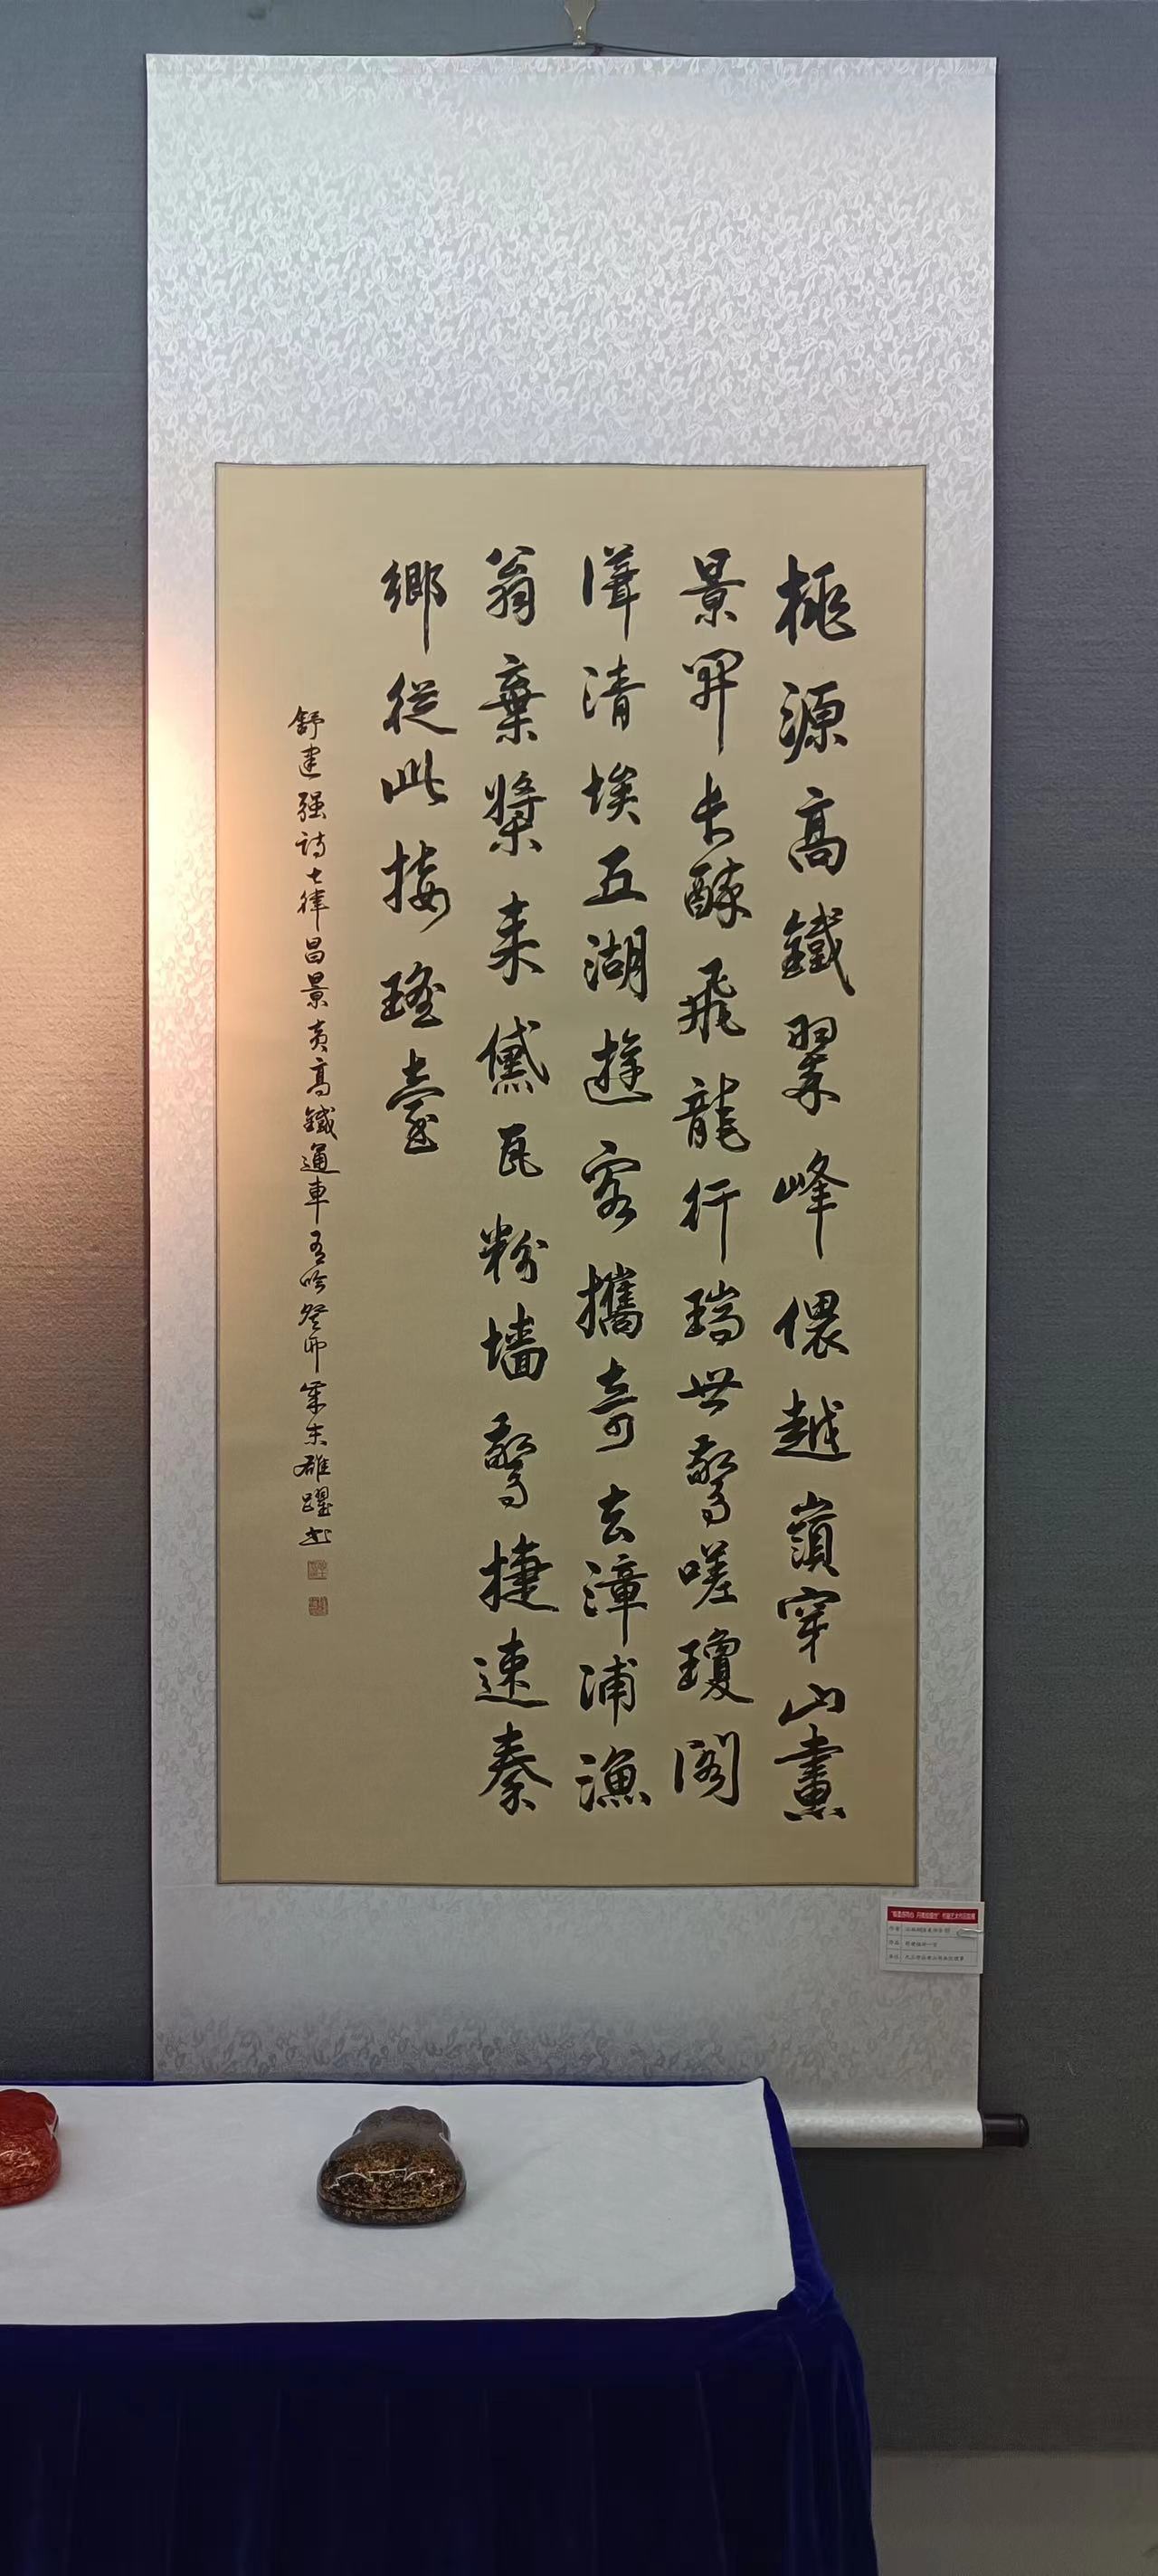 桃源高鐵翠峰偎越嶺穿山畫
景開飛龍行瑞世驚嗟瓊閣
清埃五湖遊客攜奇去漳浦漁
翁棄槳来黛瓦粉墙驚捷速秦
鄉從此接瑤臺
舒建强詩七律昌景黄高鐵通車有吟癸卯歲末雄躍書